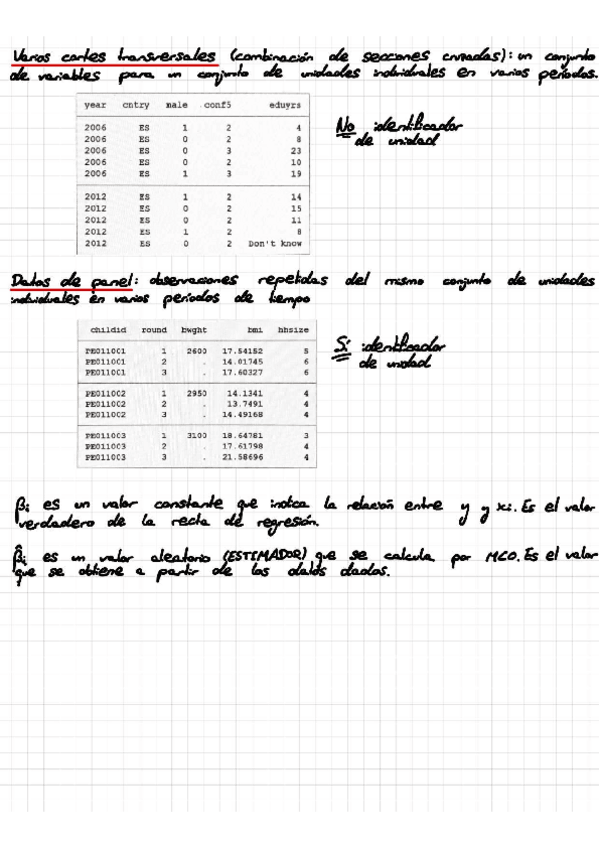 Varios cortes transversales (combinación de secciones cruzadas): un conjunto
de variables para un conjunto de unidades individuales en varios períodos.
year cntry male conf5 eduyrs
2006 ES 1 2 4
2006 ES 0 2 8
2006 ES 0 3 23
2006 ES 0 2 10
2006 ES 1 3 19
2012 ES 1 2 14
2012 ES 0 2 15
2012 ES 0 2 11
2012 ES 1 2 8
2012 ES 0 2 Don't know
No identificador
de unidad
Datos de panel: observaciones repetidas del mismo conjunto de unidades
individuales en varios períodos de tiempo
childid round bwght bmi hhsize
PE011001 1 2600 17.54152 5
PE011001 2 . 14.01745 6
PE011001 3 . 17.60327 6
PE011002 1 2950 14.1341 4
PE011002 2 . 13.7491 4
PE011002 3 . 14.49168 4
PE011003 1 3100 18.64781 3
PE011003 2 . 17.61798 4
PE011003 3 . 21.58696 4
Sí identificador
de unidad
βi es un valor constante que indica la relación entre y y xi. Es el valor
verdadero de la recta de regresión.
β̂i es un valor aleatorio (ESTIMADOR) que se calcula por MCO. Es el valor
que se obtiene a partir de los datos dados.